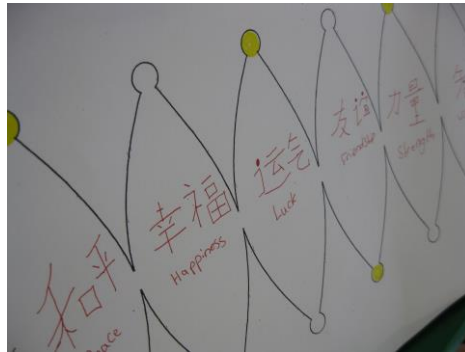 和平
幸福
Happiness
运气
Luck
友谊
Friendship
力量
Strength